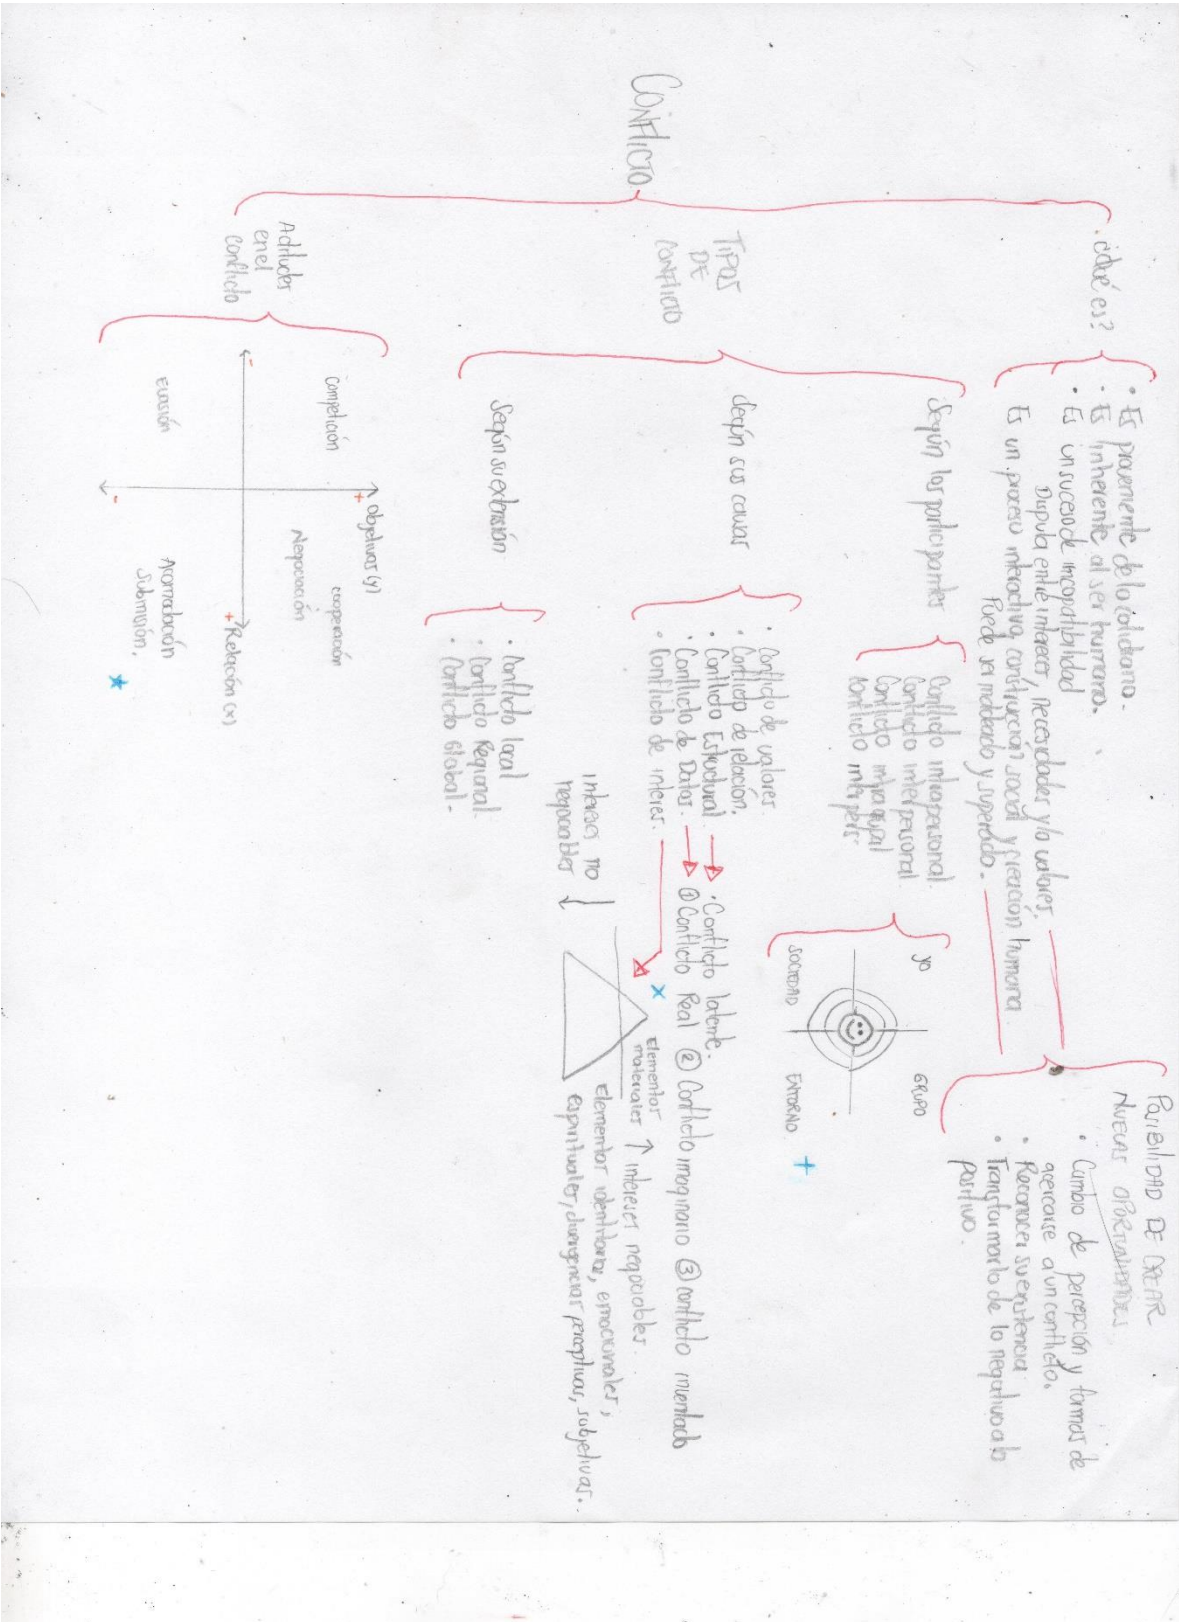 CONFLICTO
¿Qué es?
• Es proveniente de lo cotidiano.
• Es inherente al ser humano.
• Es un suceso de incopatibilidad
Disputa entre interecer, necesidades y/o valores.
Es un proceso interactivo, construcción social y creación humana
Puede ser moldeado y superado.
POSIBILIDAD DE CREAR
NUEVAS OPORTUNIDADES
• Cambio de percepción y formas de
acercarse a un conflicto.
• Reconocer su existencia
• Transformarlo de lo negativo a lo
positivo.
TIPOS
DE
CONFLICTO
Según los participantes
Conflicto intrapersonal
Conflicto interpersonal
Conflicto intragrupal
Conflicto interpers-
YO
GRUPO
SOCIEDAD
ENTORNO +
Según sus causas
• Conflicto de valores
• Conflicto de relación.
• Conflicto Estructural
• Conflicto de Datos.
• Conflicto de interes.
• Conflicto latente.
① Conflicto Real ② Conflicto imaginario ③ conflicto inventado
x
Elementos
materiales ↑ intereses negociables.
Intereses no
negociables
Elementos identitarios, emocionales,
espirituales, divergencias perceptivas, subjetivas.
Según su extensión
• Conflicto local
• Conflicto Regional
• Conflicto Global-
Actitudes
en el
conflicto
+ Objetivos (y)
Competición
cooperación
Negociación
-
+ Relación (x)
Evasión
Acomodación
Submisión.
-